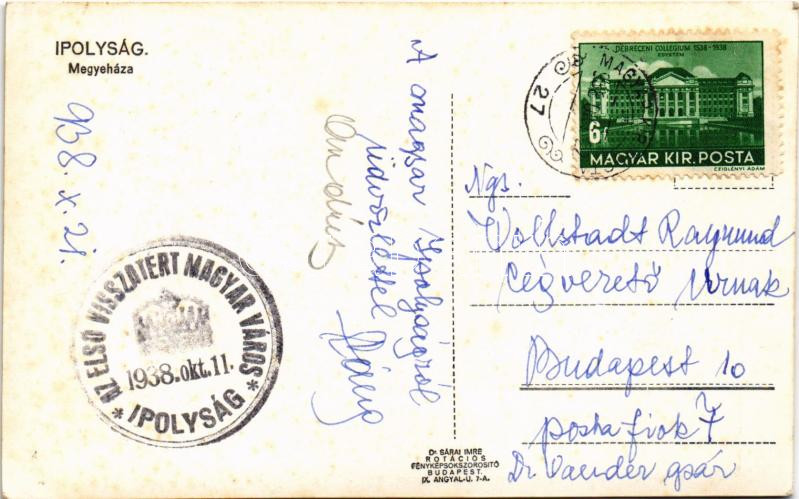 IPOLYSÁG.
Megyeháza
938. X. 21.
AZ ELSŐ VISSZATÉRT MAGYAR VÁROS
1938. okt. 11.
* IPOLYSÁG *
A magyar Ipolyságról
üdvözlettel
DEBRECENI COLLEGIUM 1538-1938
EGYETEM
6f
MAGYAR KIR. POSTA
CZIGLÉNYI ÁDÁM
27
Ngs.
Vollstadt Raymund
Cégvezető Urnak
Budapest 10
postafiok 7
Dr Wander gyár
Dr. SÁRAI IMRE
ROTÁCIÓS
FÉNYKÉPSOKSZOROSITÓ
BUDAPEST.
IX. ANGYAL-U. 7-A.